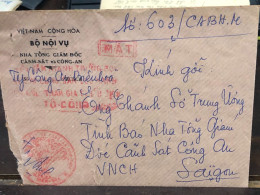 VIỆT-NAM CỘNG HÒA
BỘ NỘI VỤ
NHA TỔNG GIÁM ĐỐC
CẢNH-SÁT và CÔNG-AN
Số: 603/CABH.M
MẬT
Kính gởi
Ty Công An Biên Hòa
Ông Chánh Sở Trung Ương
Tình Báo Nha Tổng Giám
Đốc Cảnh Sát Công An
VNCH
Saigon